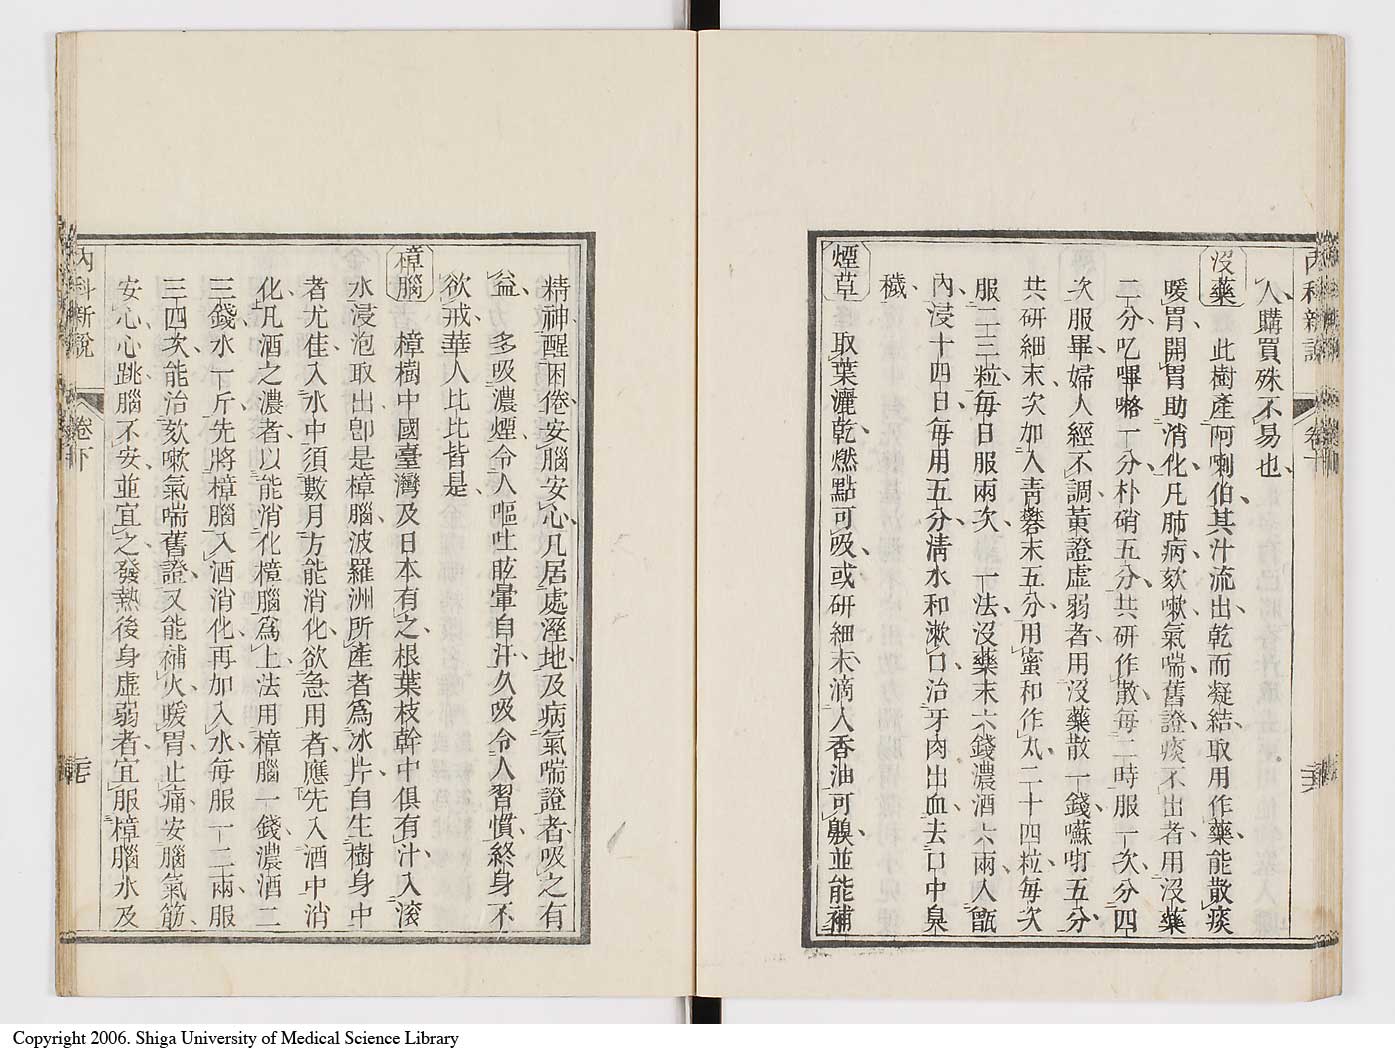 內科新說 卷下
人購買殊不易也
沒藥 此樹產阿喇伯其汁流出乾而凝結取用作藥能散痰
暖胃開胃助消化凡肺病欬嗽氣喘舊證痰不出者用沒藥
二分叱嗶咯一分朴硝五分共研作散每二時服一次分四
次服畢婦人經不調黃證虛弱者用沒藥散一錢囌叮五分
共研細末次加入青礬末五分用蜜和作丸二十四粒每次
服二三粒每日服兩次 一法沒藥末六錢濃酒六兩入甑
內浸十四日每用五分淸水和漱口治牙肉出血去口中臭
穢
煙草 取葉灑乾燃點可吸或研細末滴入香油可齅並能補
精神醒困倦安腦安心凡居處溼地及病氣喘證者吸之有
益 多吸濃煙令人嘔吐眩暈自汗久吸令人習慣終身不
欲戒華人比比皆是
樟腦 樟樹中國臺灣及日本有之根葉枝幹中俱有汁入滚
水浸泡取出卽是樟腦波羅洲所產者爲冰片自生樹身中
者尤佳入水中須數月方能消化欲急用者應先入酒中消
化凡酒之濃者以能消化樟腦爲上法用樟腦一錢濃酒二
三錢水一斤先將樟腦入酒消化再加入水每服一二兩服
三四次能治欬嗽氣喘舊證又能補火暖胃止痛安腦氣筋
安心心跳腦不安並宜之發熱後身虛弱者宜服樟腦水及
內科新說 卷下
Copyright 2006. Shiga University of Medical Science Library